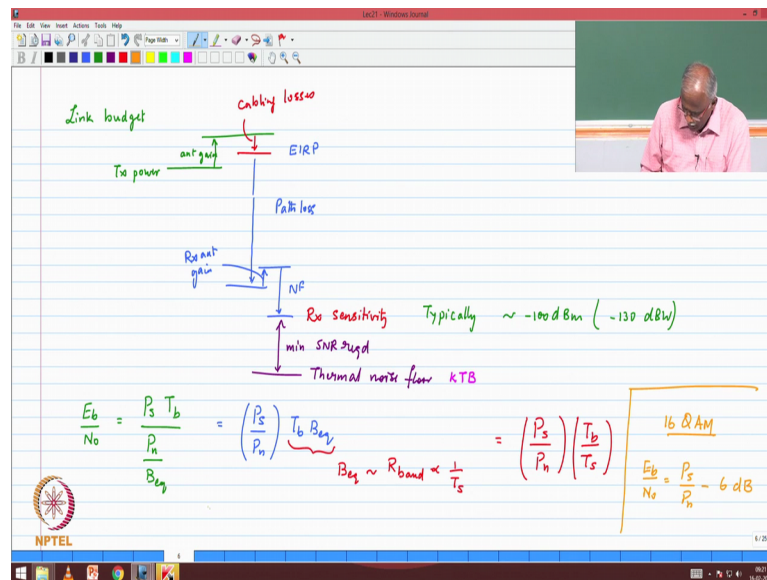 Lec21 - Windows Journal
File Edit View Insert Actions Tools Help
Page Width
B I
Link budget
Cabling losses
ant gain
EIRP
Tx power
Path loss
Rx ant gain
NF
Rx sensitivity Typically ~ -100 dBm ( -130 dBW)
min SNR reqd
Thermal noise floor kTB
Eb/No = Ps Tb / (Pn/Beq) = (Ps/Pn) Tb Beq = (Ps/Pn) (Tb/Ts)
Beq ~ Rbaud ∝ 1/Ts
16 QAM
Eb/No = Ps/Pn - 6 dB
NPTEL
6
6/25
09:21